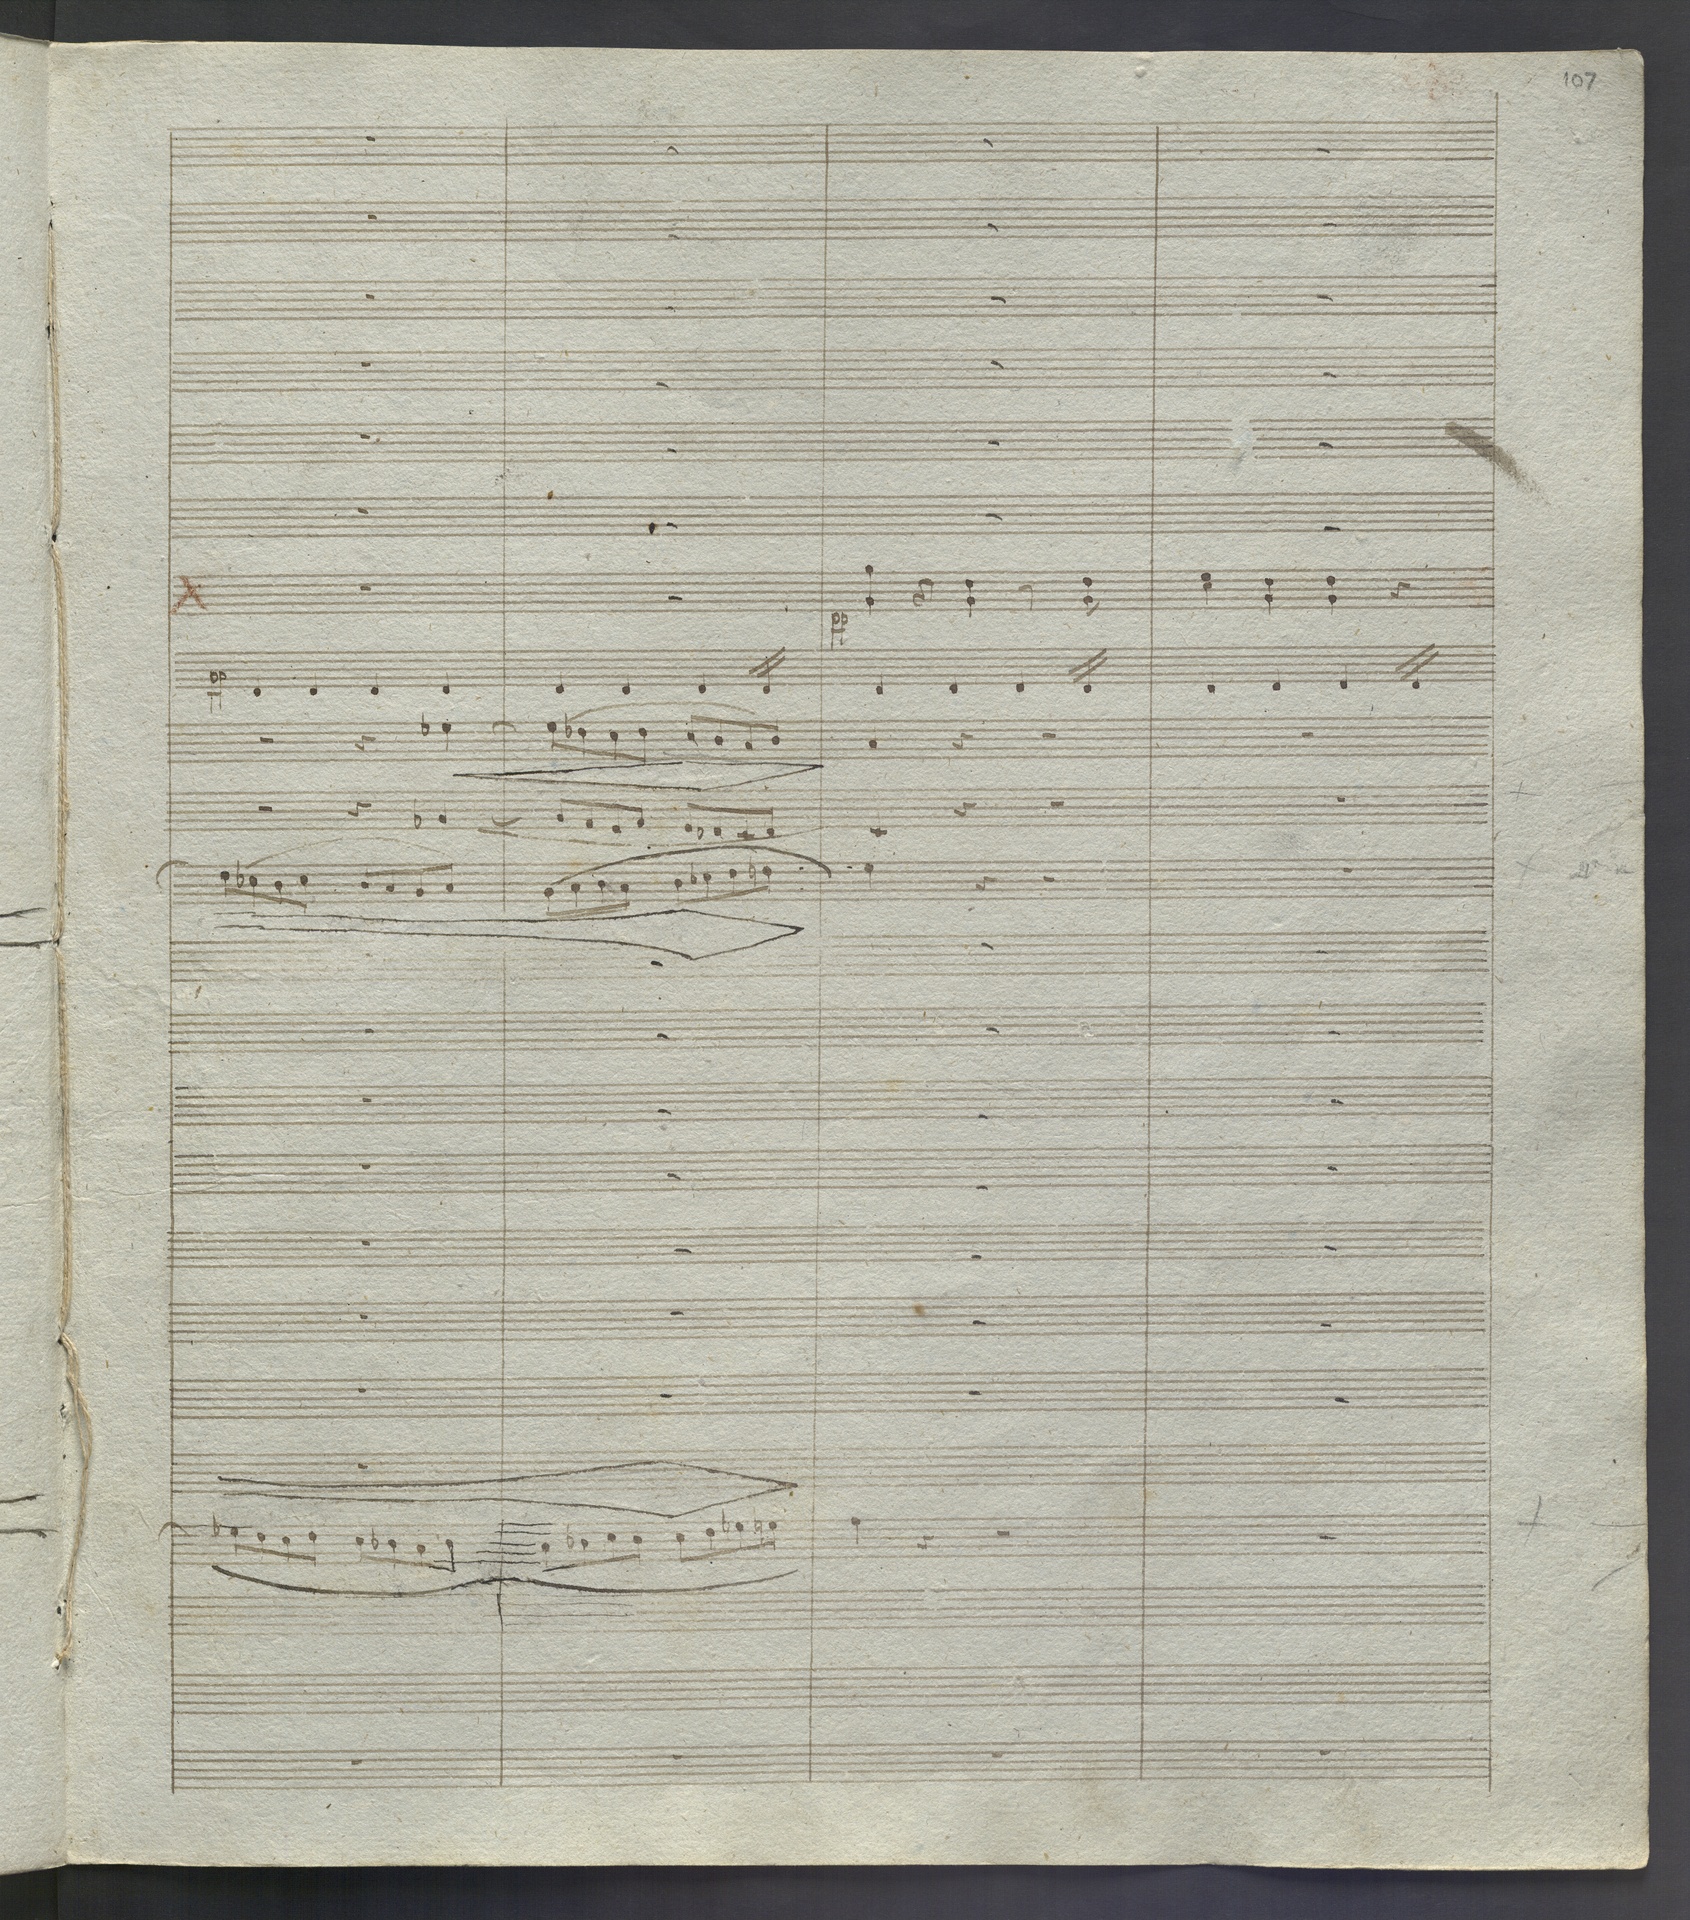 107
pp
pp